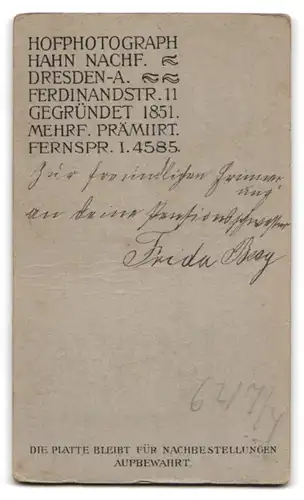 HOFPHOTOGRAPH
HAHN NACHF.
DRESDEN-A.
FERDINANDSTR. 11
GEGRÜNDET 1851.
MEHRF. PRÄMIIRT.
FERNSPR. 1.4585.
Zur freundlichen Erinner
ung
an deine Pensionsschwester
Frida Berg
DIE PLATTE BLEIBT FÜR NACHBESTELLUNGEN
AUFBEWAHRT.